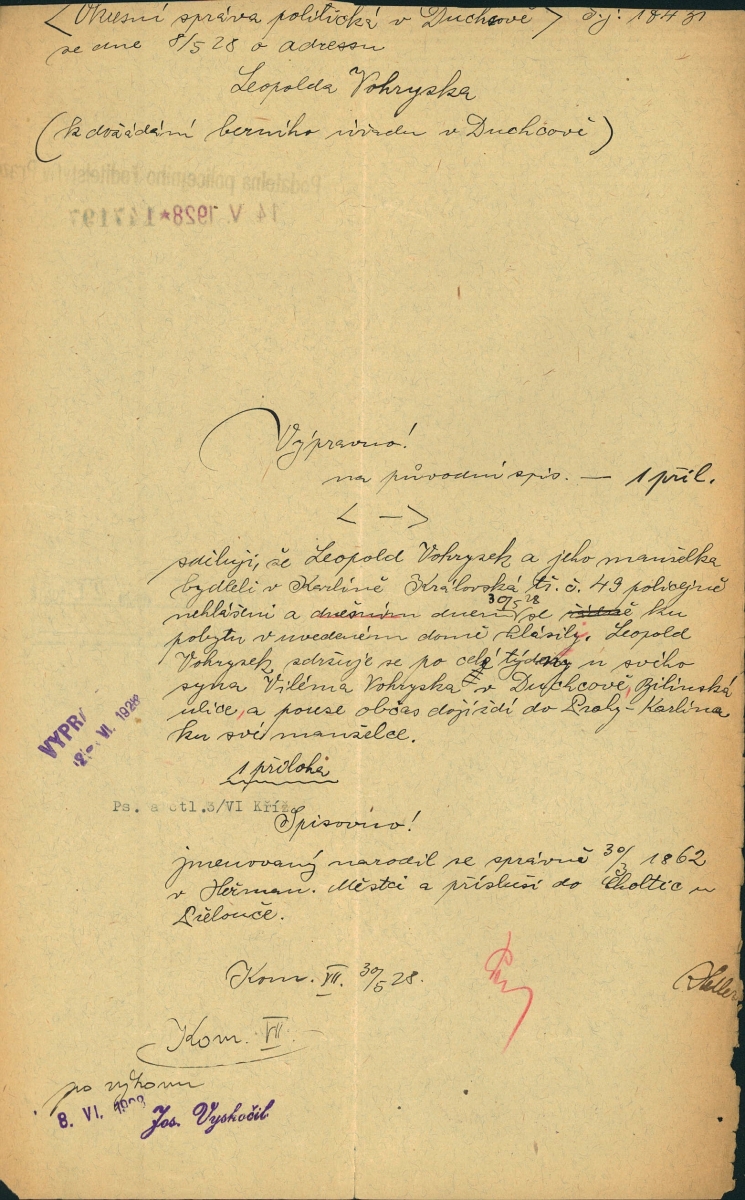 < Okresní správa politická v Duchcově > č.j: 18431
ze dne 8/5 28 o adressu
Leopolda Vohryska
(k dožádání berního úřadu v Duchcově)
Podatelna policejního ředitelství v Praze
14 V. 1928*147197
Výpravno!
na původní spis. — 1 příl.
< — >
sděluji, že Leopold Vohrysek a jeho manželka
bydleli v Karlíně Královská tř. č. 49 policejně
nehlášeni a dnešním dnem 30/5 28 se ku
pobytu v uvedeném domě hlásily. Leopold
Vohrysek zdržuje se po celé týdny u svého
syna Viléma Vohryska v Duchcově, Bílinská
ulice, a pouse občas dojíždí do Prahy-Karlína
ku své manželce.
1 příloha
VYPR
2 - VI. 1928
Ps. a otl. 3/VI Kříž
Spisovno!
jmenovaný narodil se správně 30/3 1862
v Heřman. Městci a přísluší do Choltic u
Přelouče.
Kom. VII. 30/5 28.
Kom. VII.
po výkonu
8. VI. 1928 Jos. Vyskočil